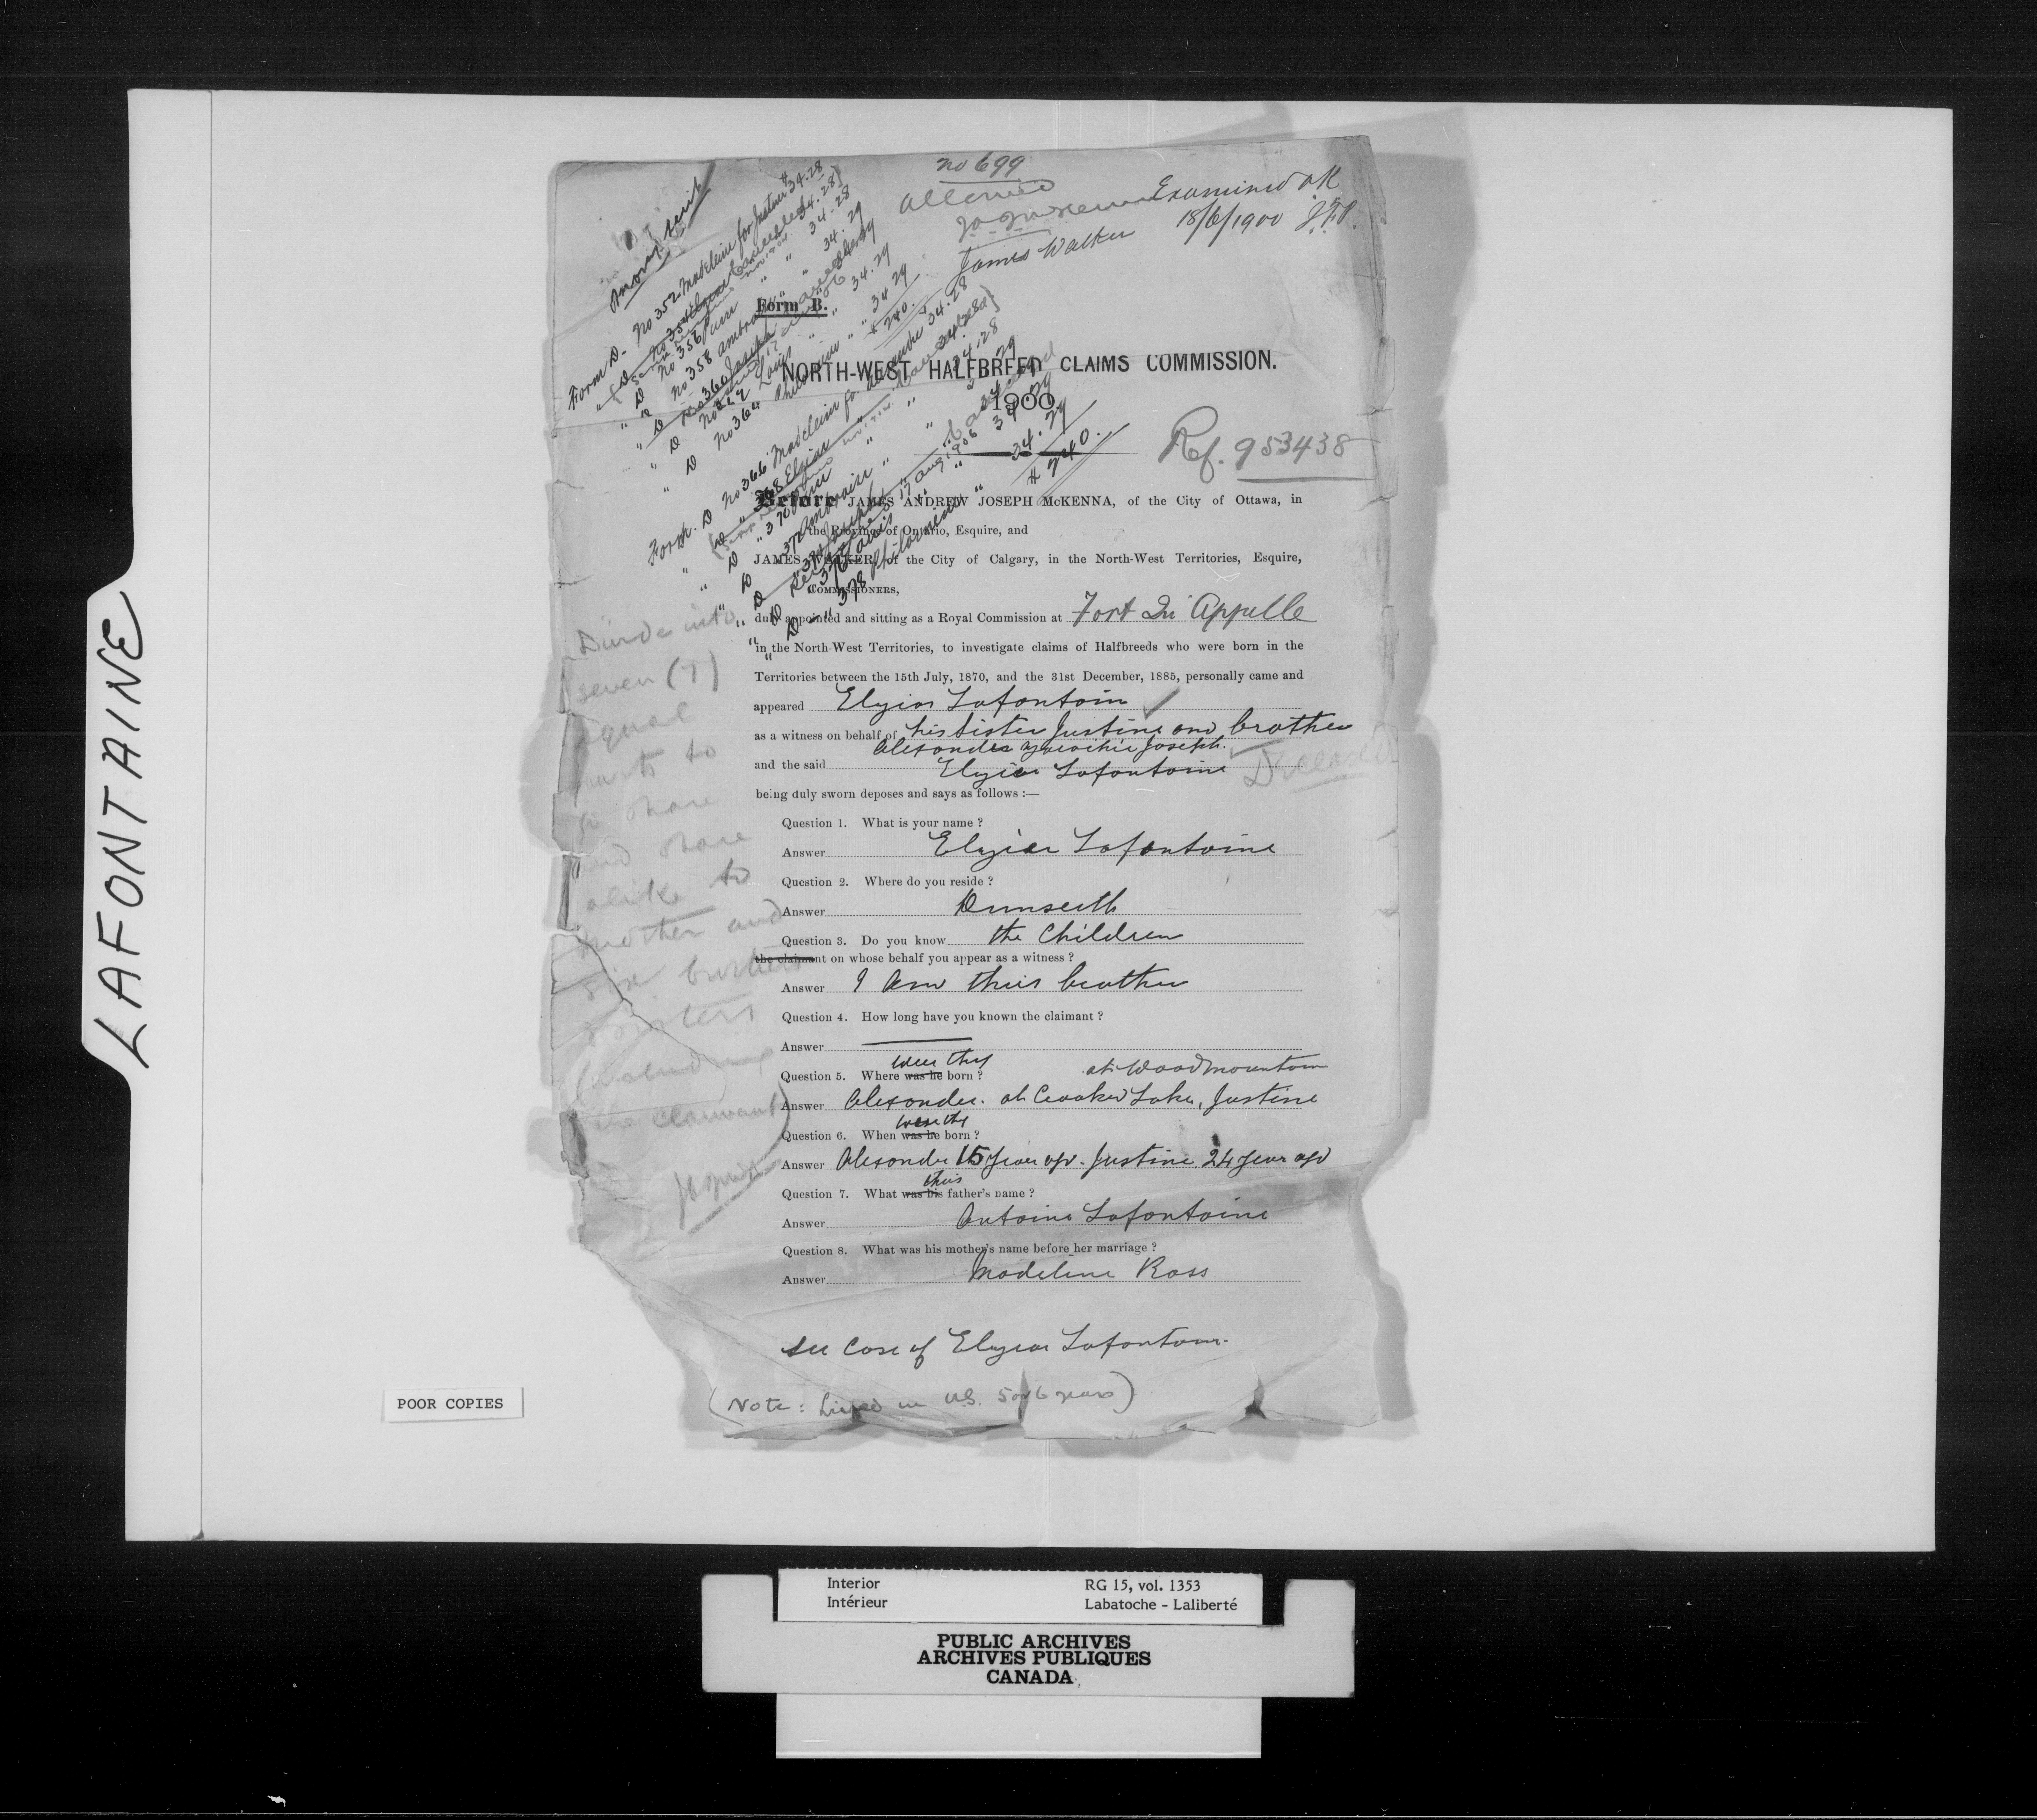 LAFONTAINE
no 699
allowed
Examined OK
18/6/1900 J.F.P.
James Walker
Money scrip
Form D - No 352 Madeleine for Justine $34.28
" D No 354 Elzear cancelled 34.28
" D No 356 " " 34.28
" D No 358 Ambroise " " 34.29
" D No 360 Joseph
" D Louis " " 34.29
" D No 364 Philomene " " 34.29
$240.
Form D No 366 Madeleine for Alexandre $34.28
" D " 368 Elzear
" D " 370
" D 372 Ambroise "
" D
" D " 376 Louis " 34.29
" D " 378 Philomene " " 34.29
$240.
Form B.
NORTH-WEST HALFBREED CLAIMS COMMISSION.
1900
Ref. 953438
Before JAMES ANDREW JOSEPH McKENNA, of the City of Ottawa, in
the Province of Ontario, Esquire, and
JAMES WALKER, of the City of Calgary, in the North-West Territories, Esquire,
COMMISSIONERS,
duly appointed and sitting as a Royal Commission at Fort Qu'Appelle
in the North-West Territories, to investigate claims of Halfbreeds who were born in the
Territories between the 15th July, 1870, and the 31st December, 1885, personally came and
appeared Elzior Lafontain
as a witness on behalf of his sister Justine and brother
Alexander Joseph.
and the said Elzior Lafontaine Deceased
being duly sworn deposes and says as follows :—
Question 1. What is your name ?
Answer Elzior Lafontaine
Question 2. Where do you reside ?
Answer Dunseith
Question 3. Do you know the Children
the claimant on whose behalf you appear as a witness ?
Answer I am their brother
Question 4. How long have you known the claimant ?
Answer
were they
Question 5. Where was he born ? at Woodmountain
Answer Alexander. at Crooked Lake, Justine
were they
Question 6. When was he born ?
Answer Alexander 15 year ago. Justine 24 year ago
their
Question 7. What was his father's name ?
Answer Antoine Lafontaine
Question 8. What was his mother's name before her marriage ?
Answer Madeline Ross
see Case of Elzior Lafontain
(Note: Lived in U.S. 5 or 6 years)
Divide into
seven (7)
equal
parts to
go share
and share
alike to
mother and
six brothers
sisters
(including
the claimant)
POOR COPIES
Interior RG 15, vol. 1353
Intérieur Labatoche - Laliberté
PUBLIC ARCHIVES
ARCHIVES PUBLIQUES
CANADA